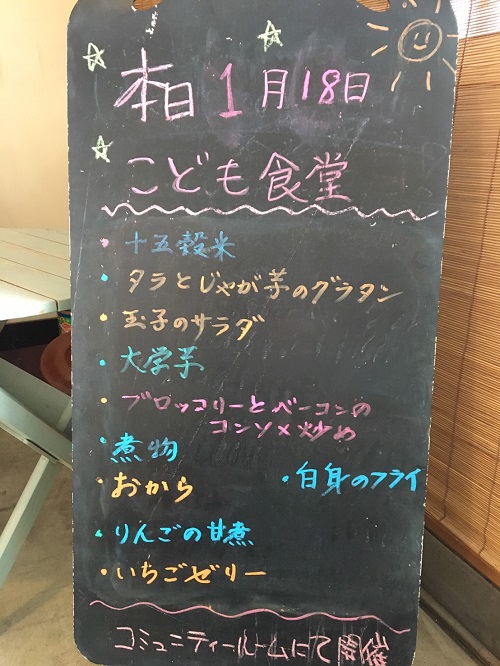 本日1月18日
こども食堂
・十五穀米
・タラとじゃが芋のグラタン
・玉子のサラダ
・大学芋
・ブロッコリーとベーコンの
コンソメ炒め
・煮物
・おから
・白身のフライ
・りんごの甘煮
・いちごゼリー
コミュニティールームにて開催